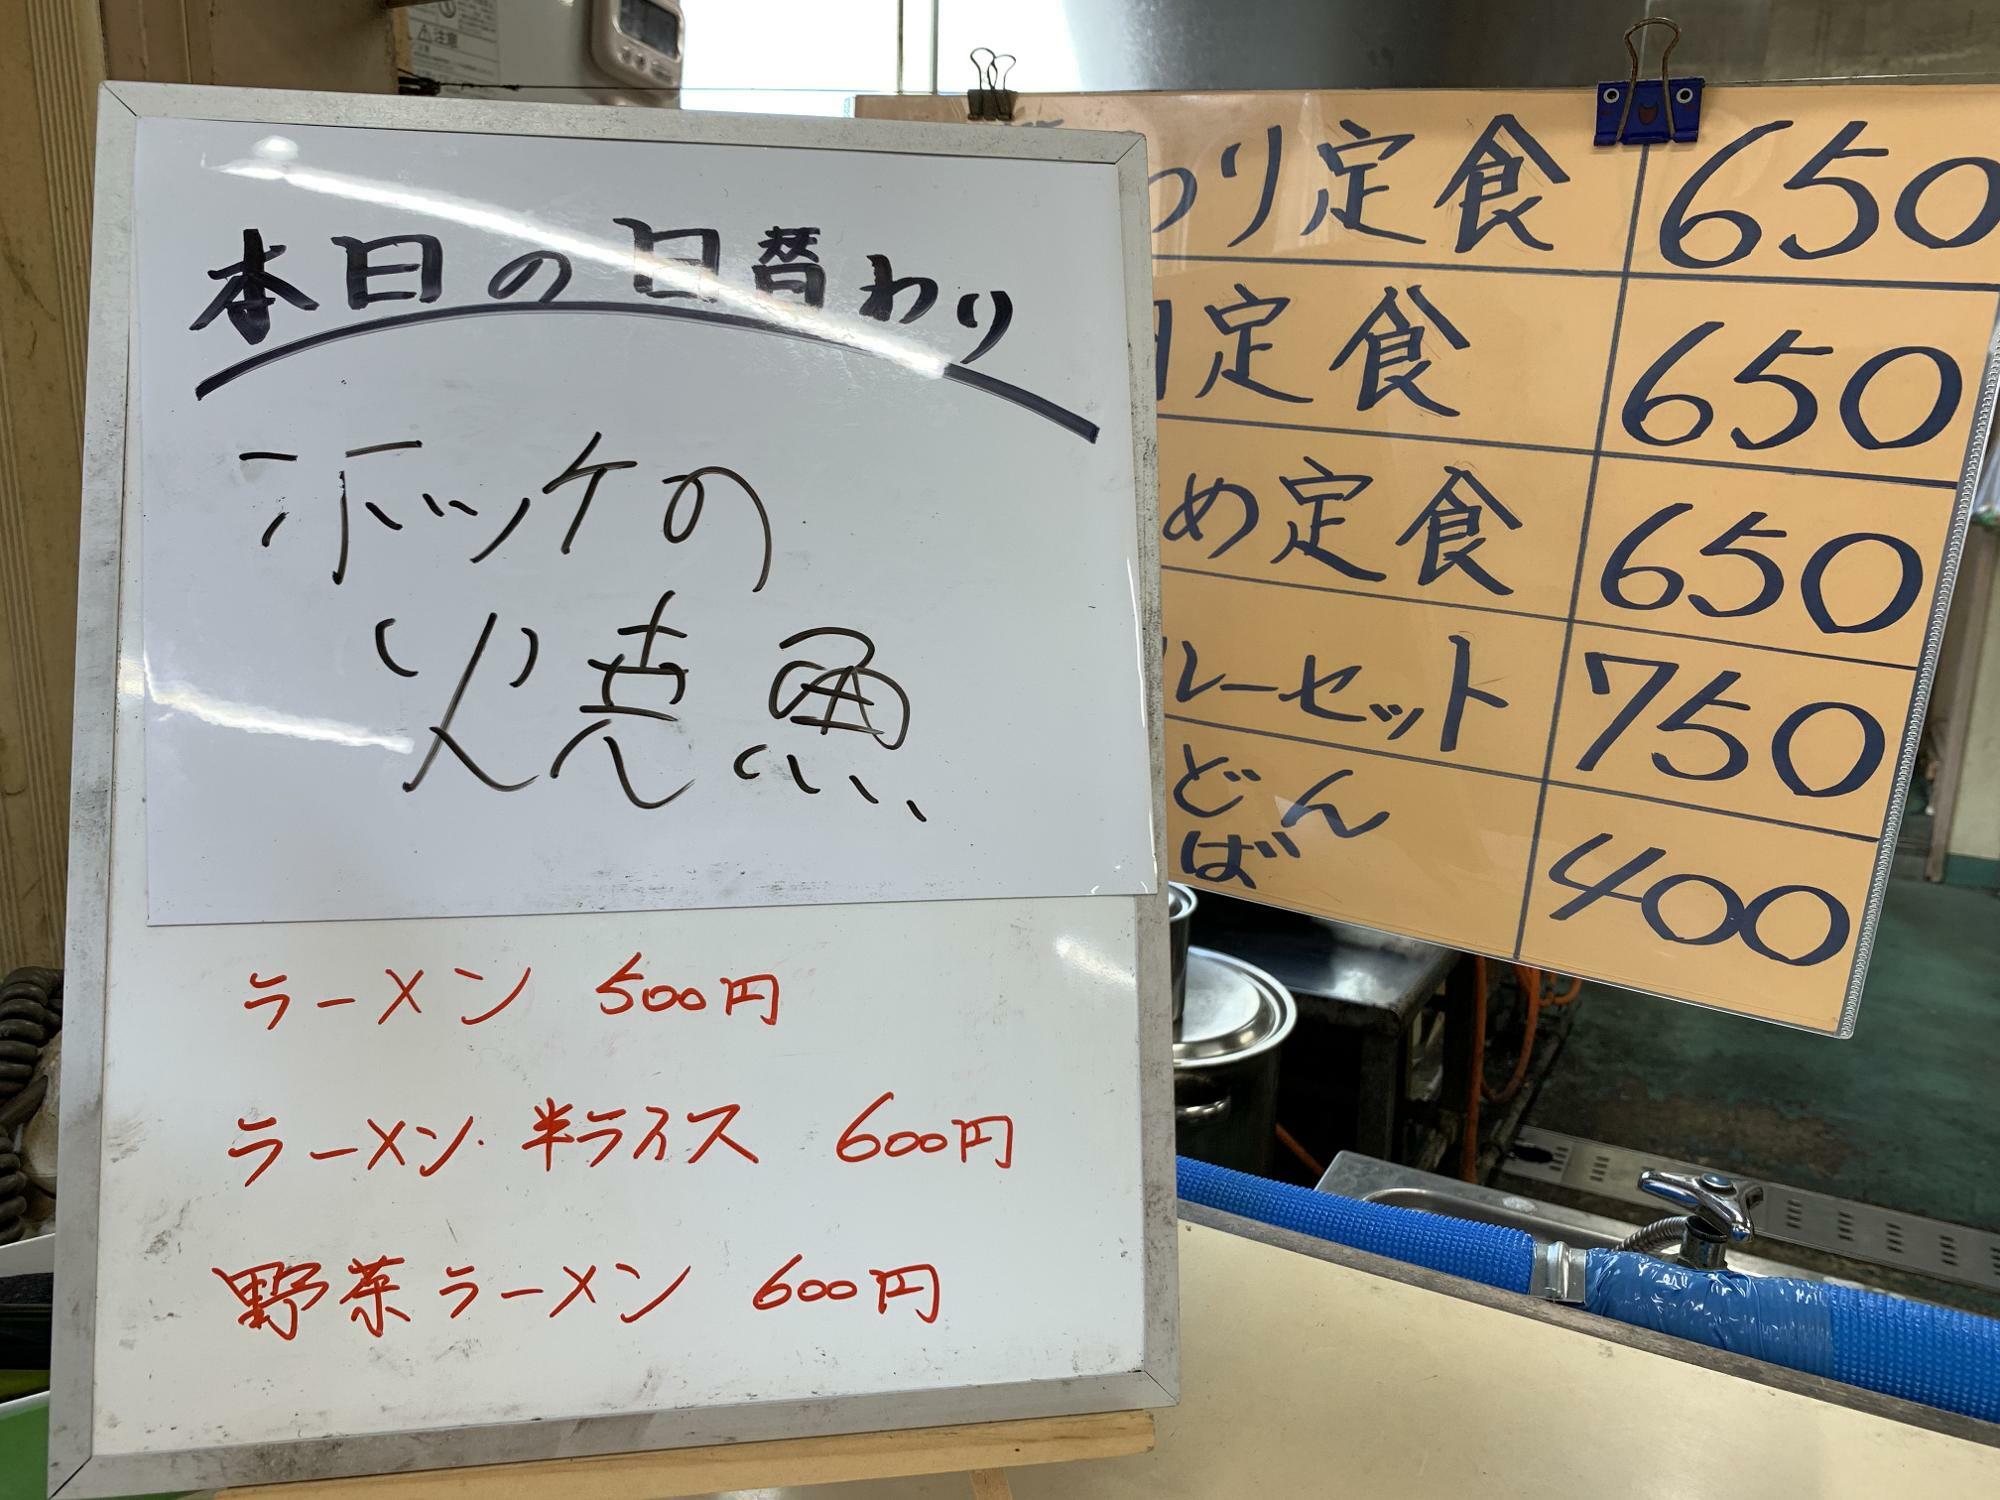 注意
本日の日替わり
ホッケの
焼魚
ラーメン 500円
ラーメン・半ライス 600円
野菜ラーメン 600円
わり定食 650
定食 650
め定食 650
ルーセット 750
どん
ば 400